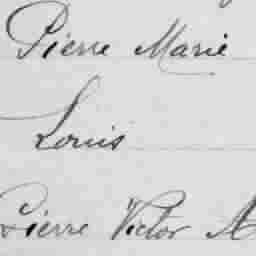 Pierre Marie
Louis
Pierre Victor A